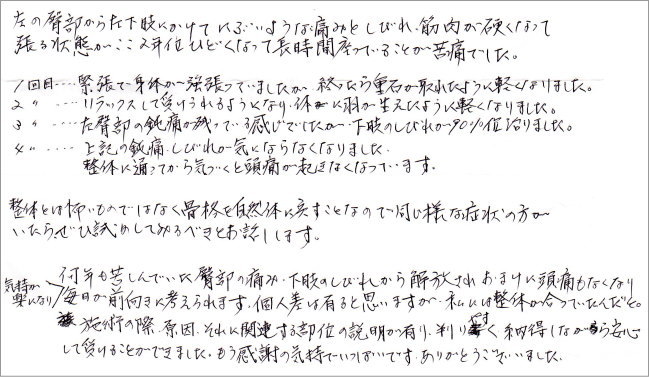 左の臀部から左下肢にかけてにぶいような痛みとしびれ、筋肉が硬くなって
張る状態がここ2年位ひどくなって長時間座っていることが苦痛でした。
1回目…緊張で身体が強張っていましたが、終ったら重石が取れたように軽くなりました。
2 〃 …リラックスして受けられるようになり、体に羽が生えたように軽くなりました。
3 〃 …左臀部の鈍痛が残っている感じでしたが、下肢のしびれが90%位治りました。
4 〃 …上記の鈍痛、しびれが気にならなくなりました。
整体に通ってから気づくと頭痛が起きなくなっています。
整体とは怖いものではなく骨格を自然体に戻すことなので同じ様な症状の方が
いたらぜひ試してみるべきとお話します。
何年も苦しんでいた臀部の痛み、下肢のしびれから解放されおまけに頭痛もなくなり
気持が楽になり毎日が前向きに考えられます。個人差は有ると思いますが、私には整体が合っていたんだと。
施術の際、原因、それに関連する部位の説明が有り、判りやすく納得しながら安心
して受けることができました。もう感謝の気持でいっぱいです。ありがとうございました。